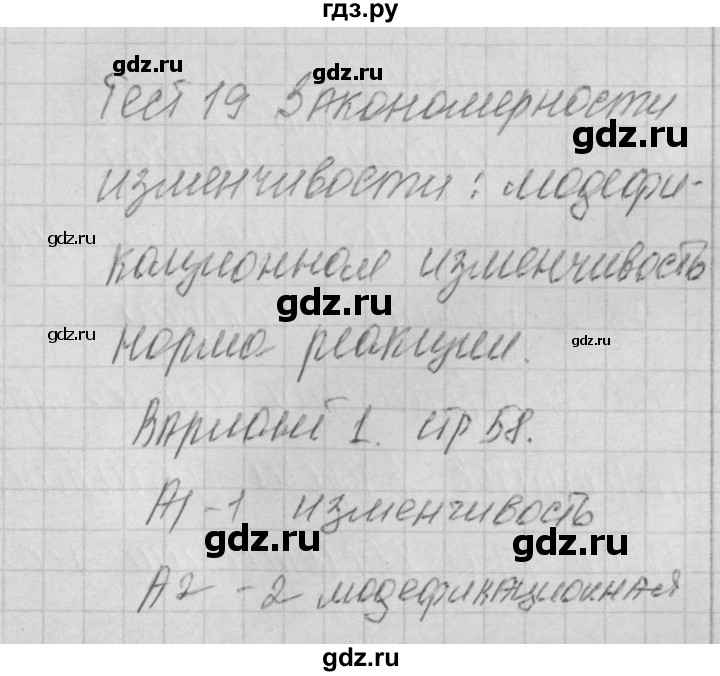 гдз.ру
gdz.ru gdz.ru
Тест 19 Закономерности
gdz.ru
изменчивости: модефи-
gdz.ru
кационная изменчивость
gdz.ru
норма реакции.
gdz.ru gdz.ru
Вариант 1. стр 58.
А1 - 1 изменчивость
gdz.ru gdz.ru
А2 - 2 модефикационная
gdz.ru